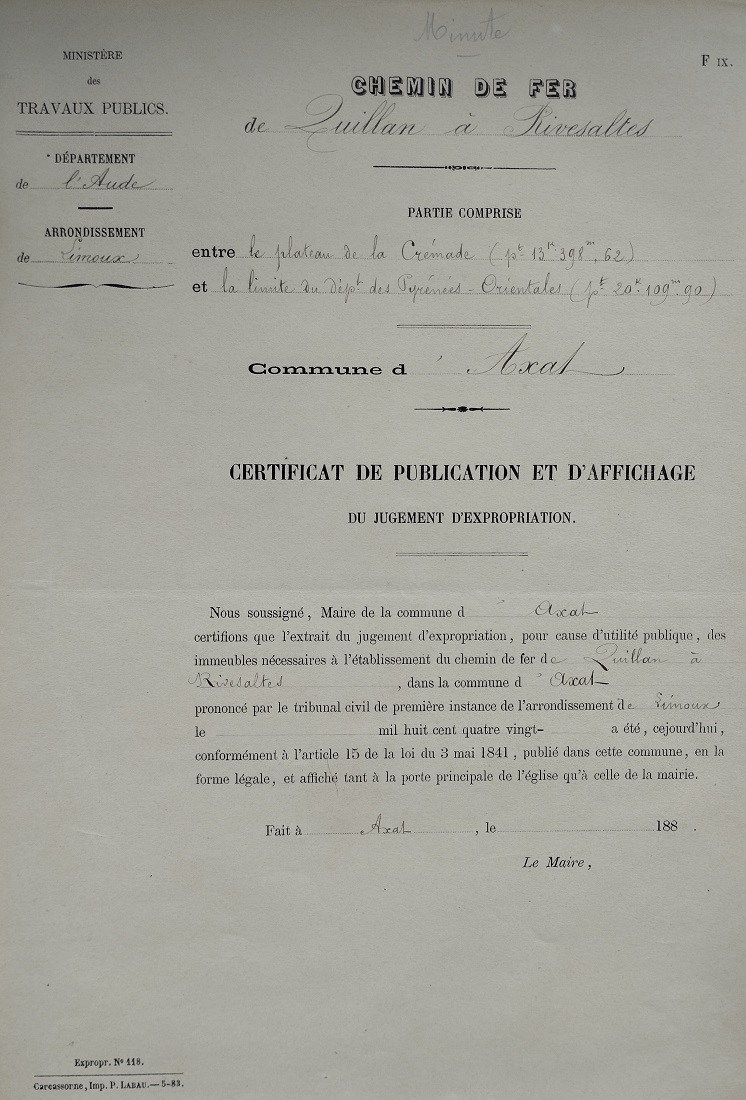 Minute
F IX.
MINISTÈRE
des
TRAVAUX PUBLICS.
DÉPARTEMENT
de l'Aude
ARRONDISSEMENT
de Limoux
CHEMIN DE FER
de Quillan à Rivesaltes
PARTIE COMPRISE
entre le plateau de la Crémade (pt 13k 398m,62)
et la limite du dépt des Pyrénées-Orientales (pt 20k 109m,90)
Commune d'Axat
CERTIFICAT DE PUBLICATION ET D'AFFICHAGE
DU JUGEMENT D'EXPROPRIATION.
Nous soussigné, Maire de la commune d'Axat
certifions que l'extrait du jugement d'expropriation, pour cause d'utilité publique, des
immeubles nécessaires à l'établissement du chemin de fer de Quillan à
Rivesaltes, dans la commune d'Axat
prononcé par le tribunal civil de première instance de l'arrondissement de Limoux,
le mil huit cent quatre vingt- a été, cejourd'hui,
conformément à l'article 15 de la loi du 3 mai 1841, publié dans cette commune, en la
forme légale, et affiché tant à la porte principale de l'église qu'à celle de la mairie.
Fait à Axat, le 188 .
Le Maire,
Expropr. N° 118.
Carcassonne, Imp. P. LABAU.— 5-83.